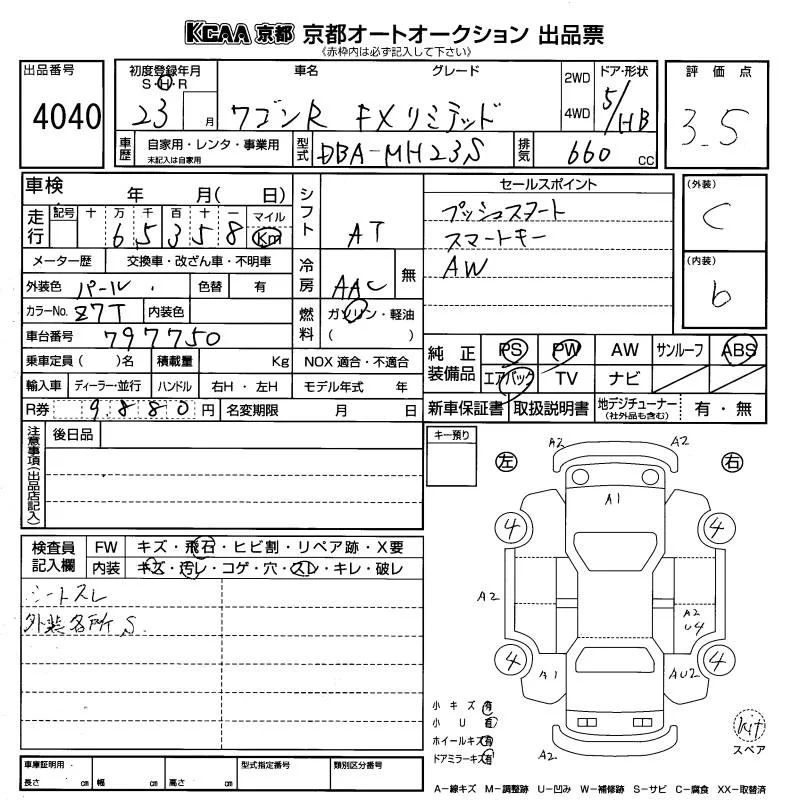 KCAA 京都 京都オートオークション 出品票
《赤枠内は必ず記入して下さい》
出品番号
4040
初度登録年月
S・H・R
23 月
車名
ワゴンR
グレード
FXリミテッド
2WD
4WD
ドア・形状
5/HB
評価点
3.5
車歴
自家用・レンタ・事業用
未記入は自家用
型式
DBA-MH23S
排気
660 CC
車検 年 月( 日)
走行
記号 十 万 千 百 十 一 マイル
6 5 3 5 8 Km
メーター歴 交換車・改ざん車・不明車
外装色 パール 色替 有
カラーNo. Z7T 内装色
車台番号 797750
乗車定員( )名 積載量 Kg
NOX 適合・不適合
輸入車 ディーラー・並行 ハンドル 右H・左H
モデル年式 年
R券 9880 円 名変期限 月 日
シフト AT
冷房 AAC 無
燃料 ガソリン・軽油
( )
セールスポイント
プッシュスタート
スマートキー
AW
(外装)
C
(内装)
b
純正装備品
PS PW AW サンルーフ ABS
エアバック TV ナビ
新車保証書 取扱説明書 地デジチューナー 有・無
(社外品も含む)
注意事項(出品店記入)
後日品
キー預り
左 右
A2 A2
A1
4 4
A2
A2
U4
4 4
A1 AU2
A2
検査員記入欄
FW キズ・飛石・ヒビ割・リペア跡・X要
内装 キズ・汚レ・コゲ・穴・スレ・キレ・破レ
シートスレ
外装各所S
小キズ 有
小U 有
ホイールキズ 有
ドアミラーキズ 有
Kit
スペア
車庫証明用
長さ cm 幅 cm 高さ cm
型式指定番号
類別区分番号
A－線キズ M－調整跡 U－凹み W－補修跡 S－サビ C－腐食 XX－取替済